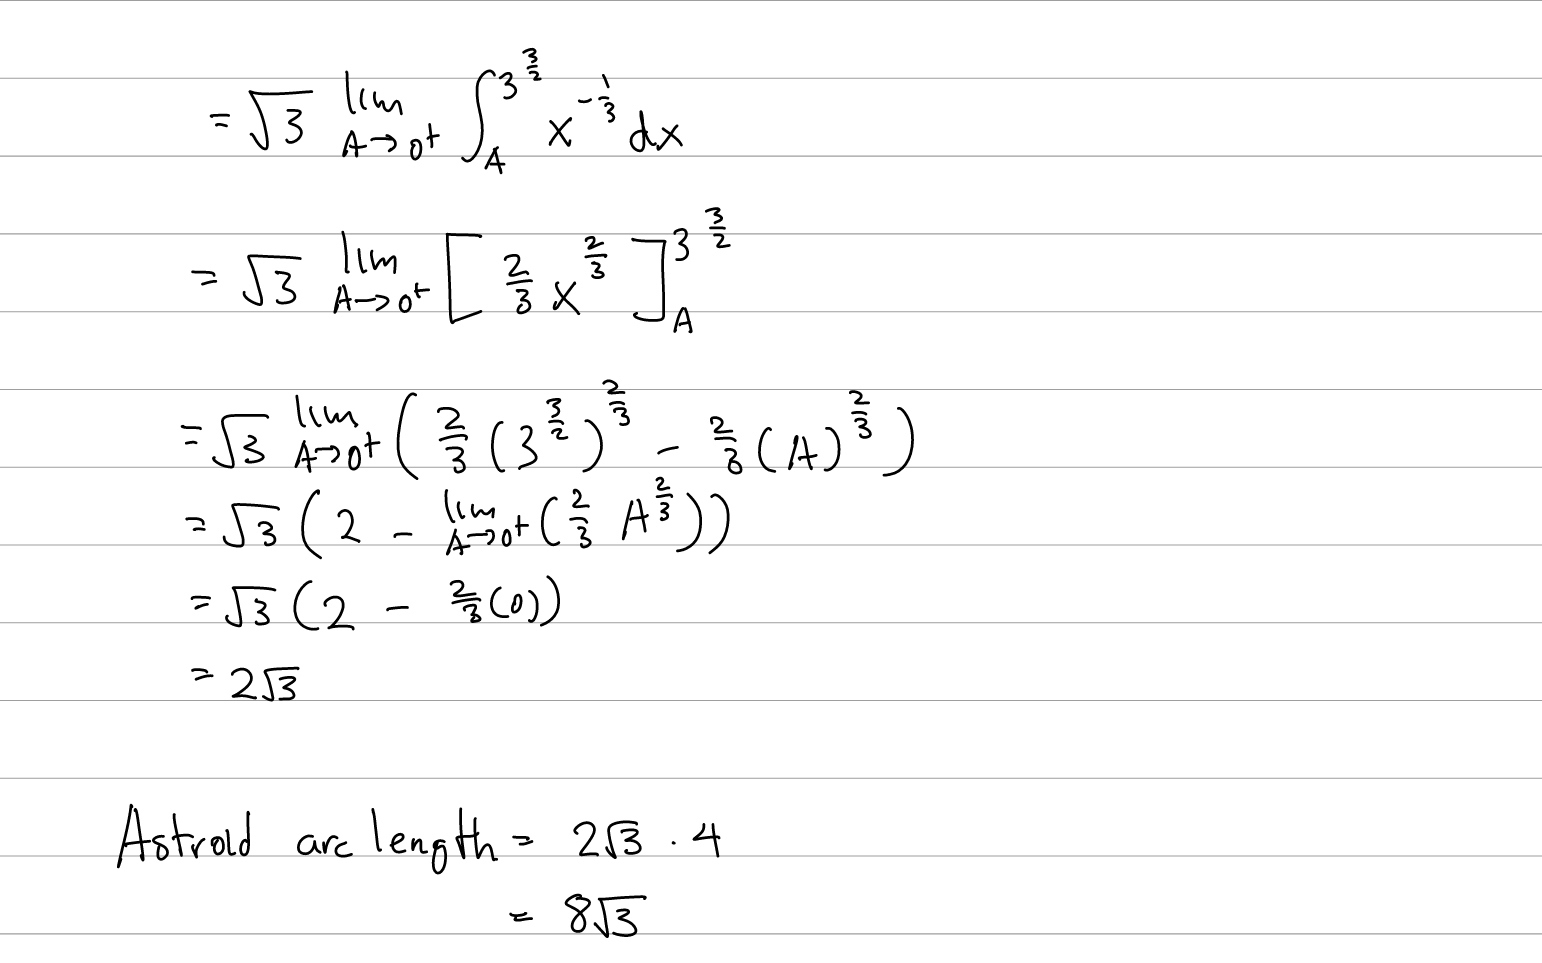 = √3 lim A→0⁺ ∫_A^{3^{3/2}} x^{-1/3} dx
= √3 lim A→0⁺ [ 2/3 x^{2/3} ]_A^{3^{3/2}}
= √3 lim A→0⁺ ( 2/3 (3^{3/2})^{2/3} - 2/3 (A)^{2/3} )
= √3 ( 2 - lim A→0⁺ ( 2/3 A^{2/3} ))
= √3 ( 2 - 2/3 (0))
= 2√3
Astroid arc length = 2√3 · 4
= 8√3